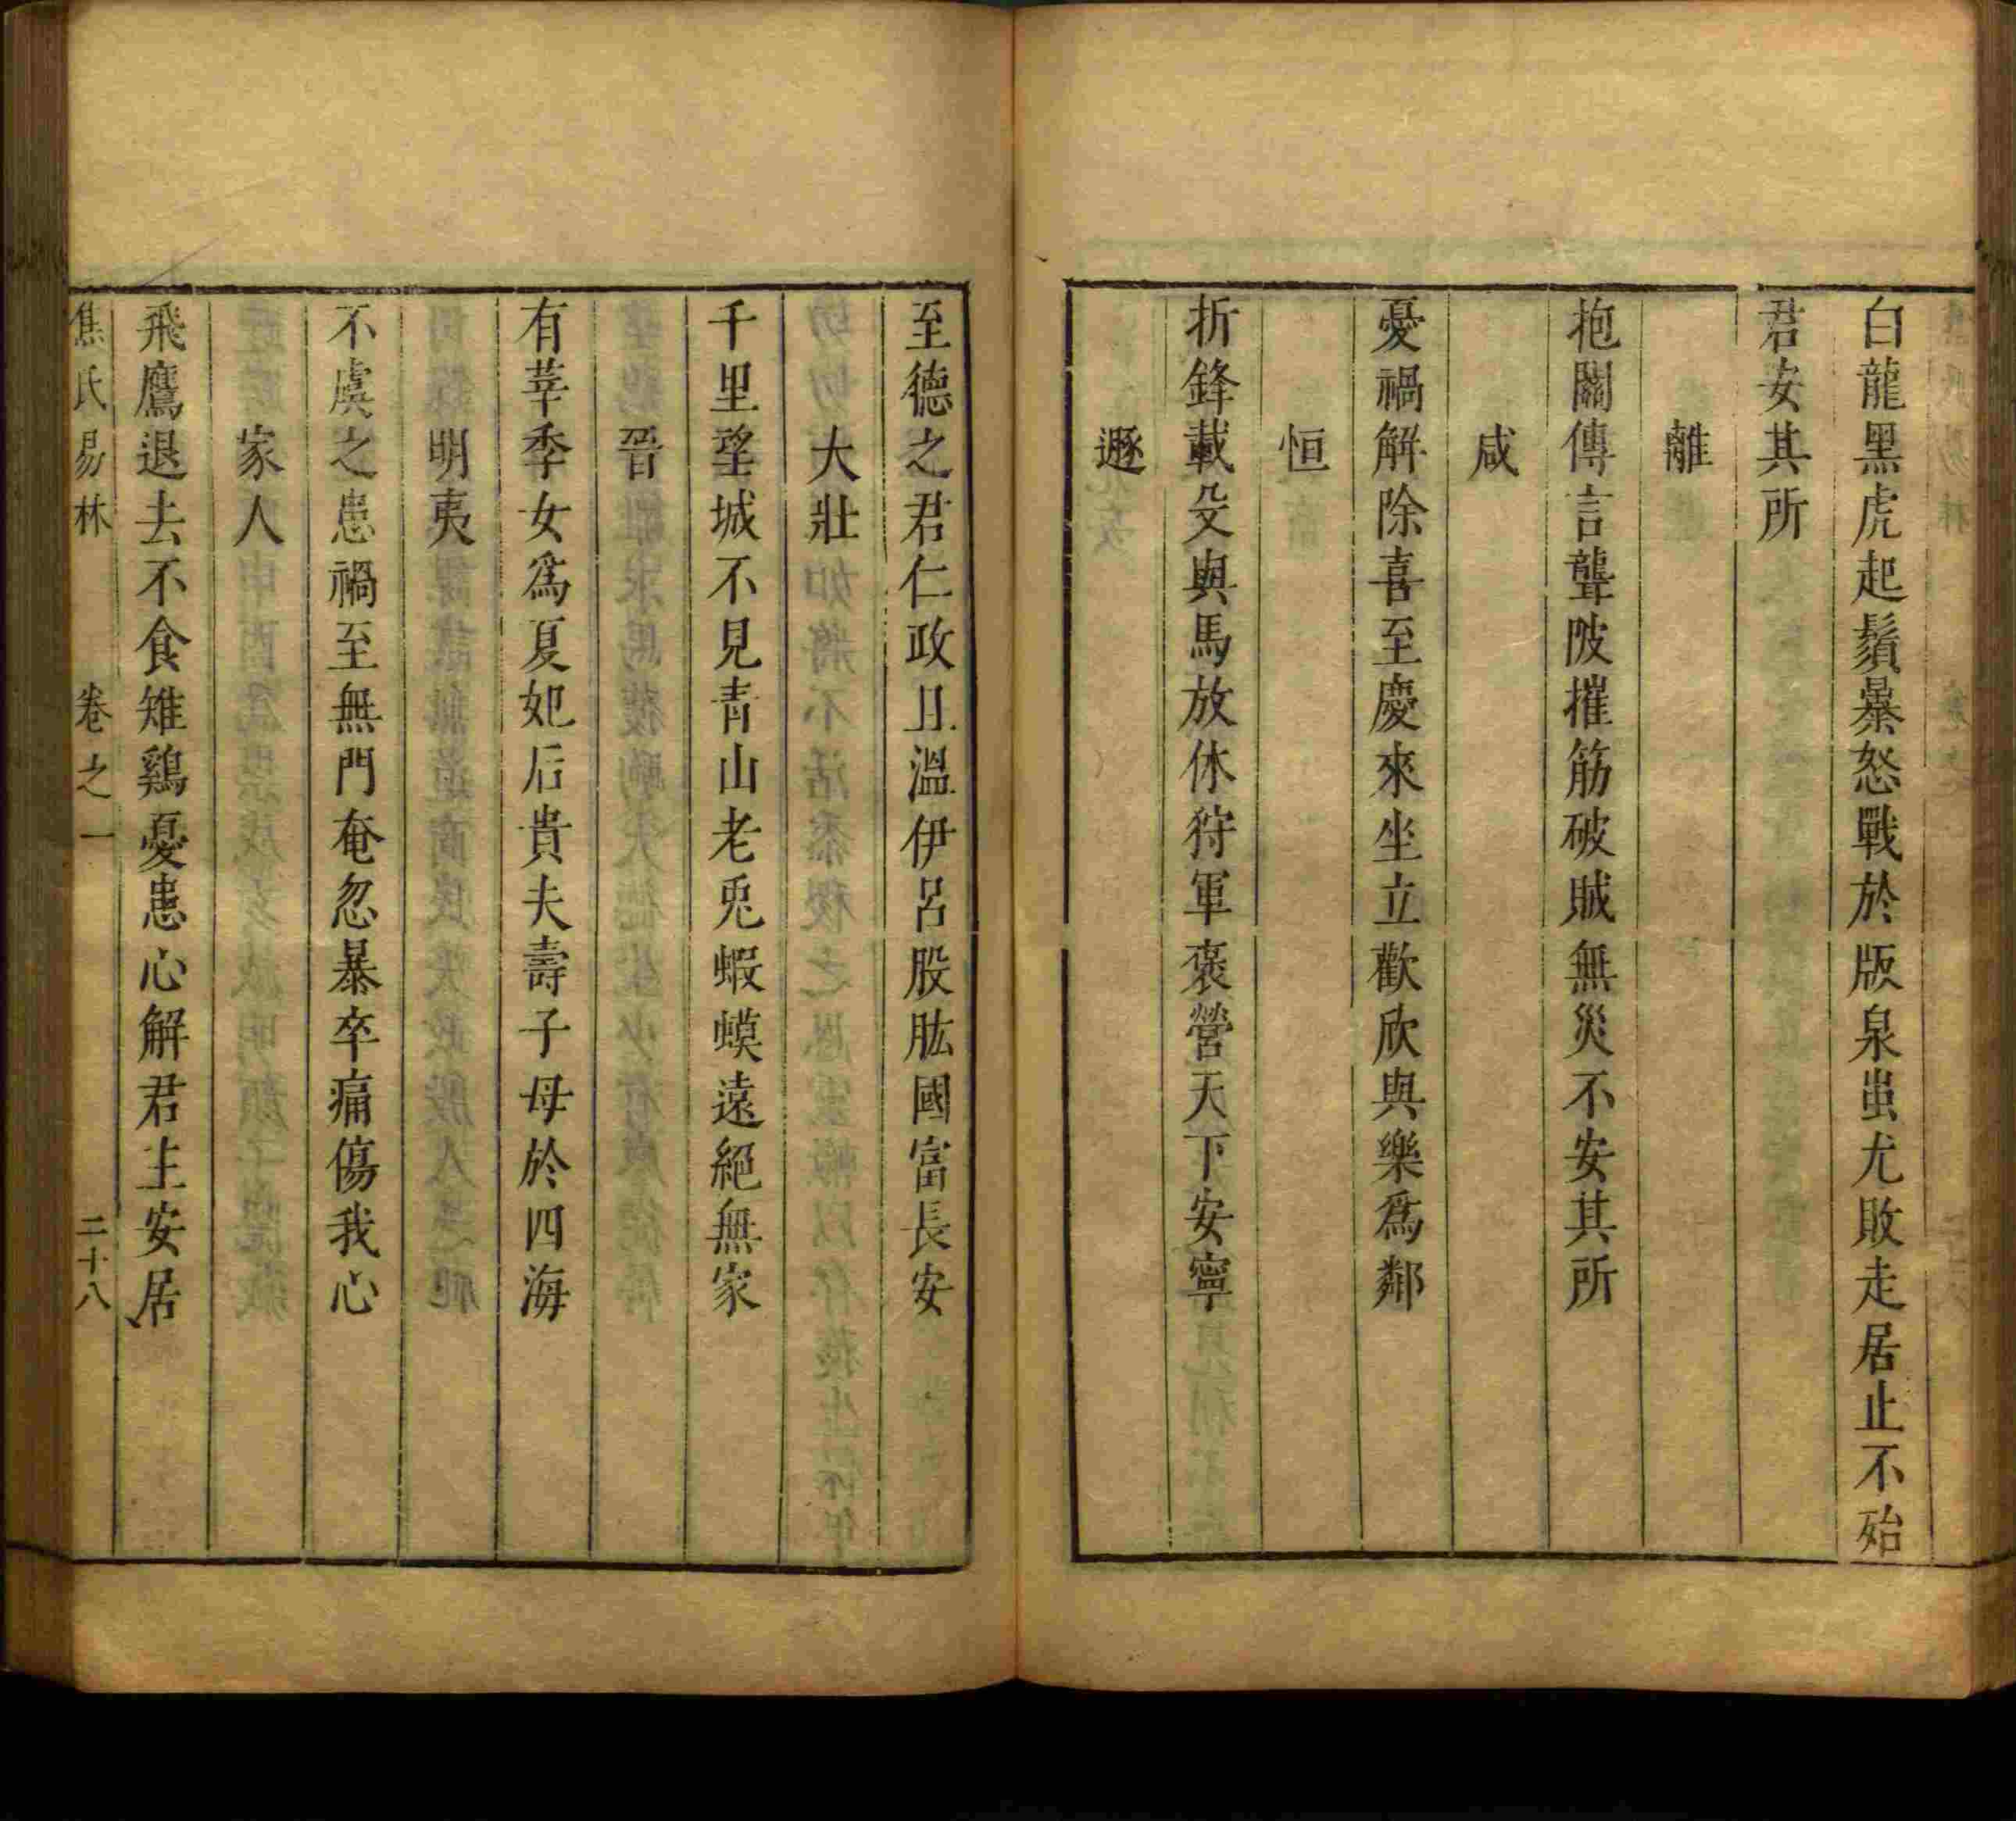 白龍黑虎起鬚暴怒戰於版泉蚩尤敗走居止不殆
君安其所
離
抱關傳言聾跛摧筋破賊無災不安其所
咸
憂禍解除喜至慶來坐立歡欣與樂爲鄰
恒
折鋒載殳輿馬放休狩軍褎營天下安寧
遯
至德之君仁政且溫伊呂股肱國富長安
大壯
千里望城不見青山老兎蝦蟆遠絕無家
晉
有莘季女爲夏妃后貴夫壽子母於四海
明夷
不虞之患禍至無門奄忽暴卒痛傷我心
家人
飛鷹退去不食雉鷄憂患心解君主安居
焦氏易林 卷之一 二十八